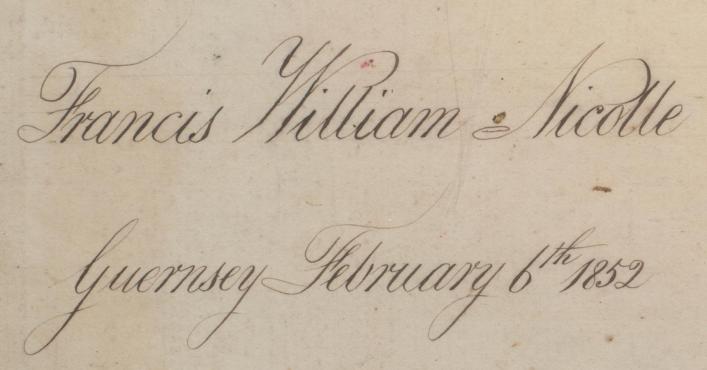 Francis William Nicolle
Guernsey February 6th 1852